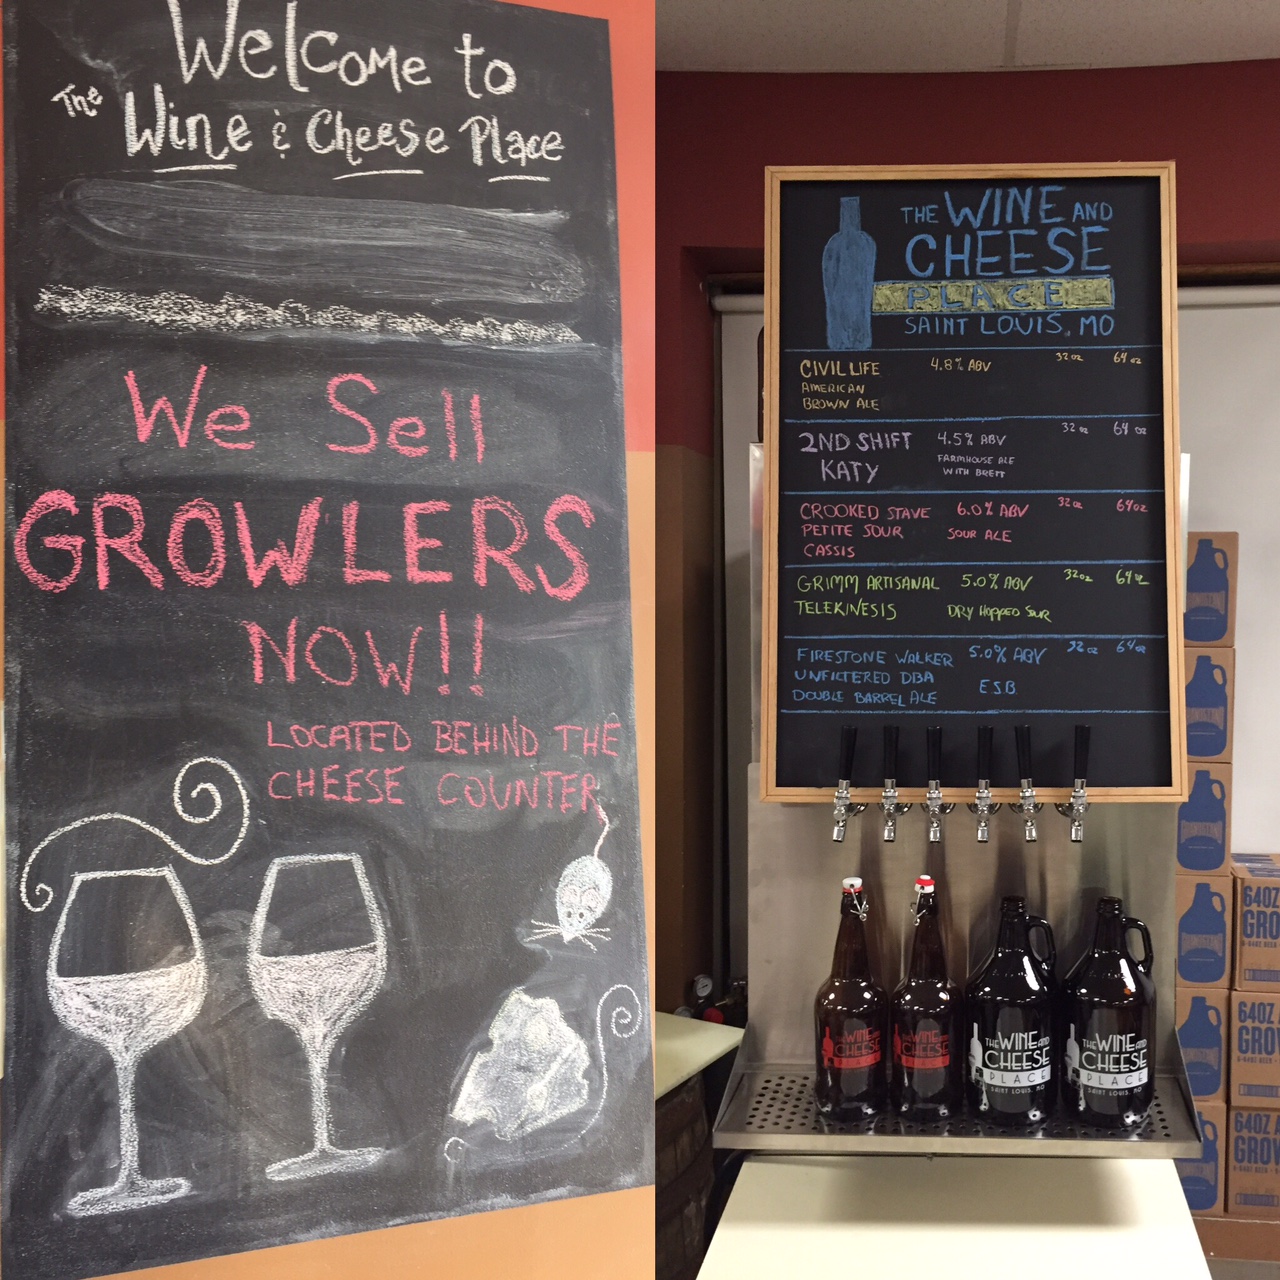 Welcome to
The Wine & Cheese Place
We Sell
GROWLERS
NOW!!
LOCATED BEHIND THE
CHEESE COUNTER
THE WINE AND
CHEESE
PLACE
SAINT LOUIS, MO
CIVIL LIFE 4.8% ABV 32 oz 64 oz
AMERICAN
BROWN ALE
2ND SHIFT 4.5% ABV 32 oz 64 oz
KATY FARMHOUSE ALE
WITH BRETT
CROOKED STAVE 6.0% ABV 32 oz 64 oz
PETITE SOUR SOUR ALE
CASSIS
GRIMM ARTISANAL 5.0% ABV 32 oz 64 oz
TELEKINESIS DRY HOPPED SOUR
FIRESTONE WALKER 5.0% ABV 32 oz 64 oz
UNFILTERED DBA E.S.B.
DOUBLE BARREL ALE
THE WINE AND
CHEESE
THE WINE AND
CHEESE
THE WINE AND
CHEESE
PLACE
SAINT LOUIS, MO
THE WINE AND
CHEESE
PLACE
SAINT LOUIS, MO
64OZ
GRO
64OZ
GROW
64OZ
GROW